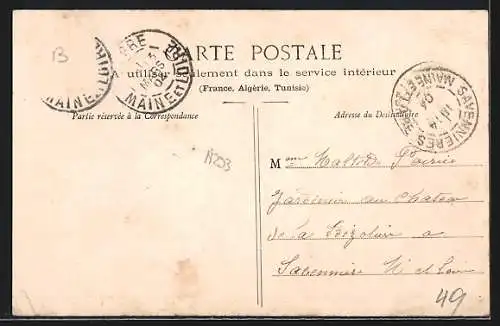 B
CARTE POSTALE
A utiliser seulement dans le service intérieur
(France, Algérie, Tunisie)
Partie réservée à la Correspondance
Adresse du Destinataire
MAINE & LOIRE
MARS
04
MAINE ET LOIRE
SAVENNIÈRES
MAINE ET LOIRE
N253
Mme
Jardinier au Chateau
de la
a
Savennières M et Loire
49